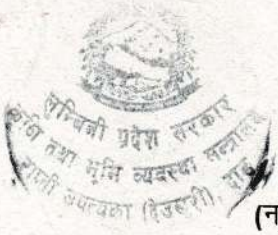 लुम्बिनी प्रदेश सरकार
कृषि तथा भूमि व्यवस्था मन्त्रालय
राप्ती उपत्यका (देउखुरी), दाङ
(न